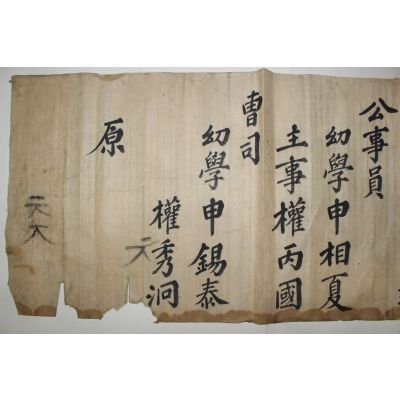 公事員
幼學申相夏
主事權丙國
曹司
幼學申錫泰
權秀洞
原